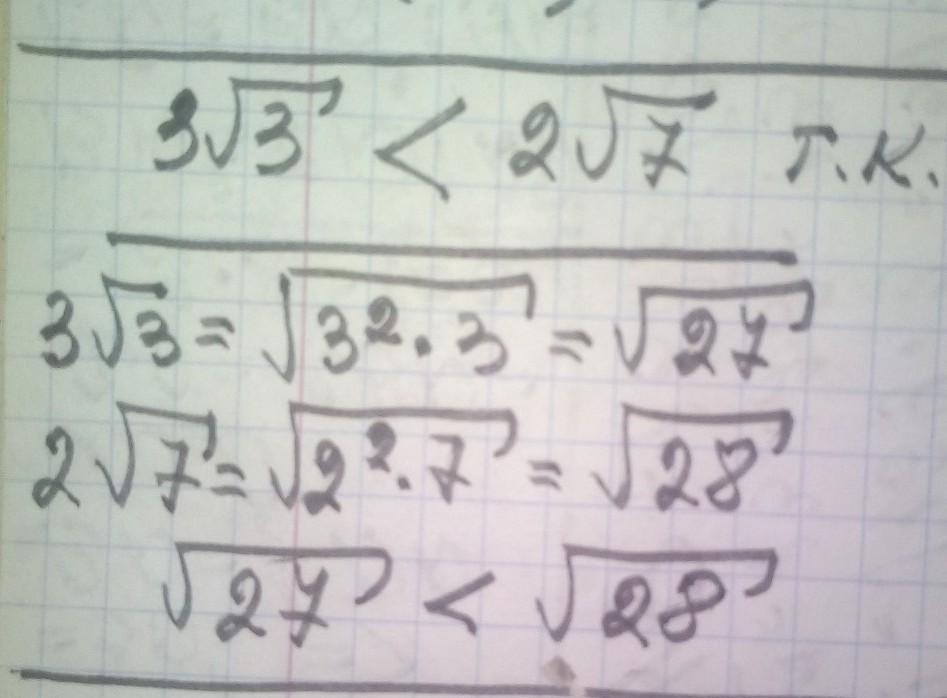 3√3 < 2√7 т.к.
3√3 = √3²·3 = √27
2√7 = √2²·7 = √28
√27 < √28